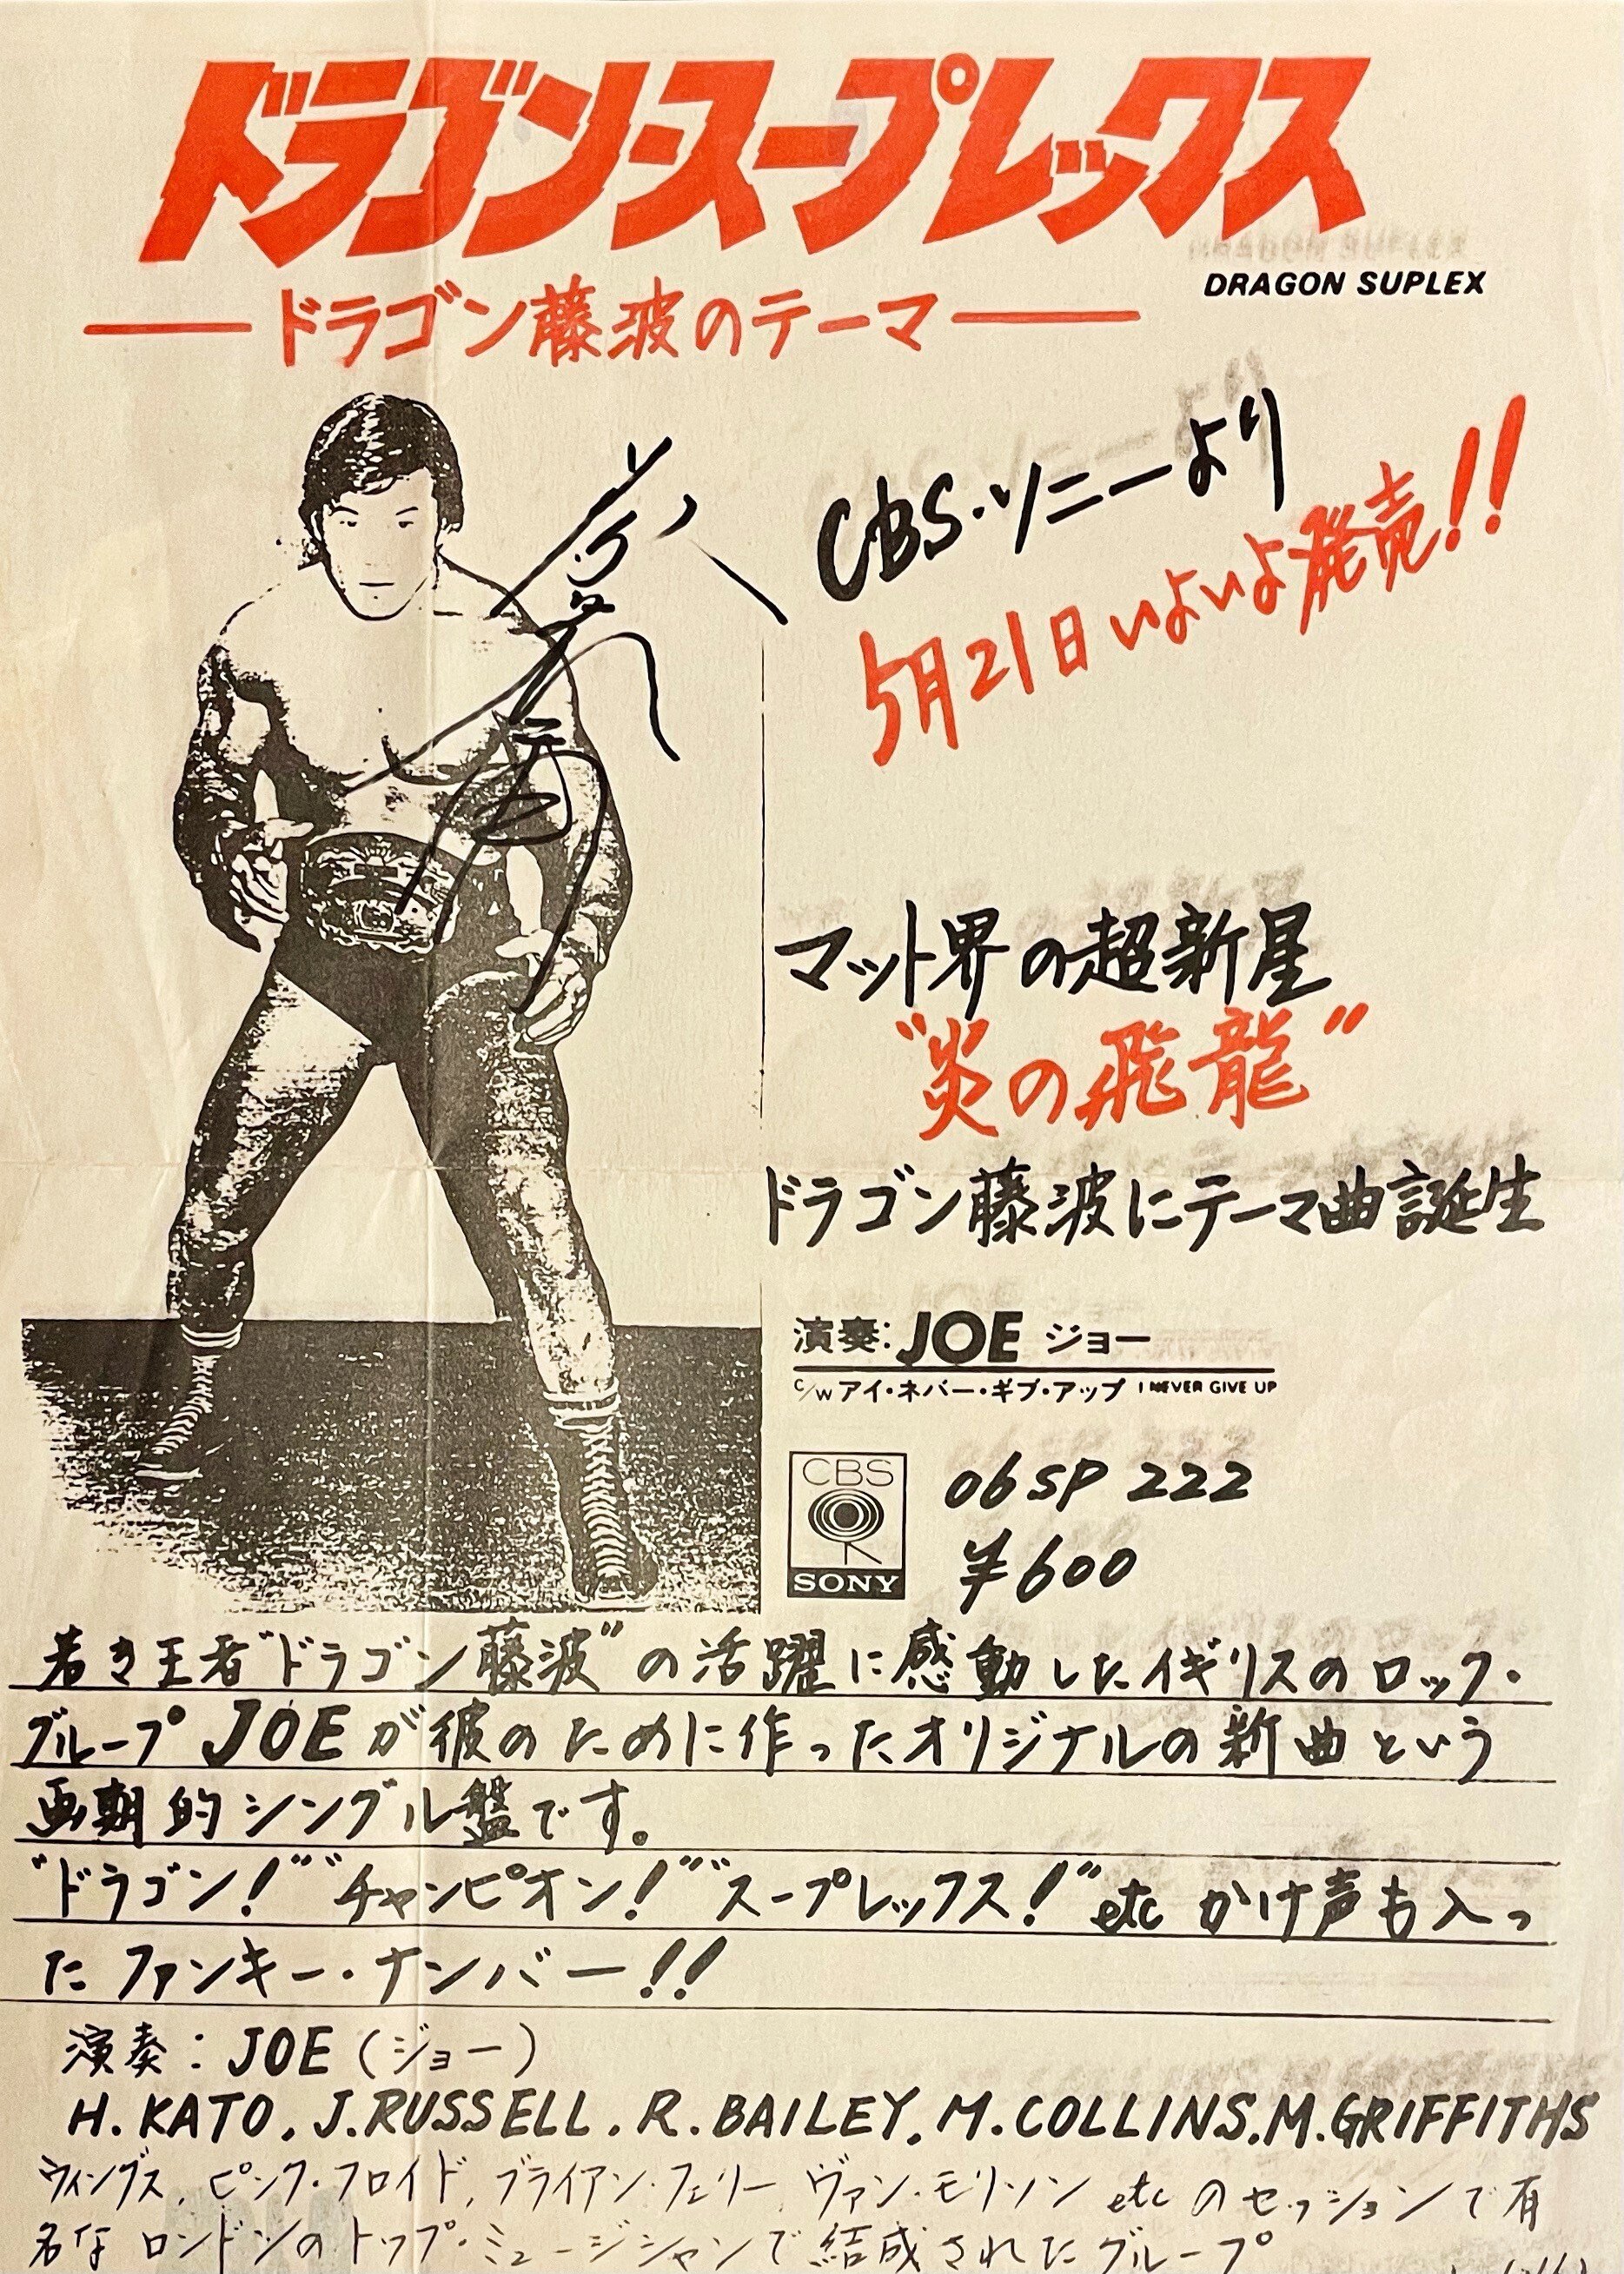 ドラゴン・スープレックス
DRAGON SUPLEX
ドラゴン藤波のテーマ
CBS・ソニーより
5月21日いよいよ発売!!
マット界の超新星
"炎の飛龍"
ドラゴン藤波にテーマ曲誕生
演奏:JOE ジョー
c/w アイ・ネバー・ギブ・アップ I NEVER GIVE UP
CBS
SONY
06SP 222
¥600
若き王者"ドラゴン藤波"の活躍に感動したイギリスのロック・
グループJOEが彼のために作ったオリジナルの新曲という
画期的シングル盤です。
"ドラゴン!""チャンピオン!""スープレックス!"etc かけ声も入っ
たファンキー・ナンバー!!
演奏:JOE(ジョー)
H.KATO. J.RUSSELL. R.BAILEY. M.COLLINS. M.GRIFFITHS
ウィングス, ピンク・フロイド, ブライアン・フェリー, ヴァン・モリソン etcのセッションで有
名な ロンドンのトップ・ミュージシャンで結成されたグループ